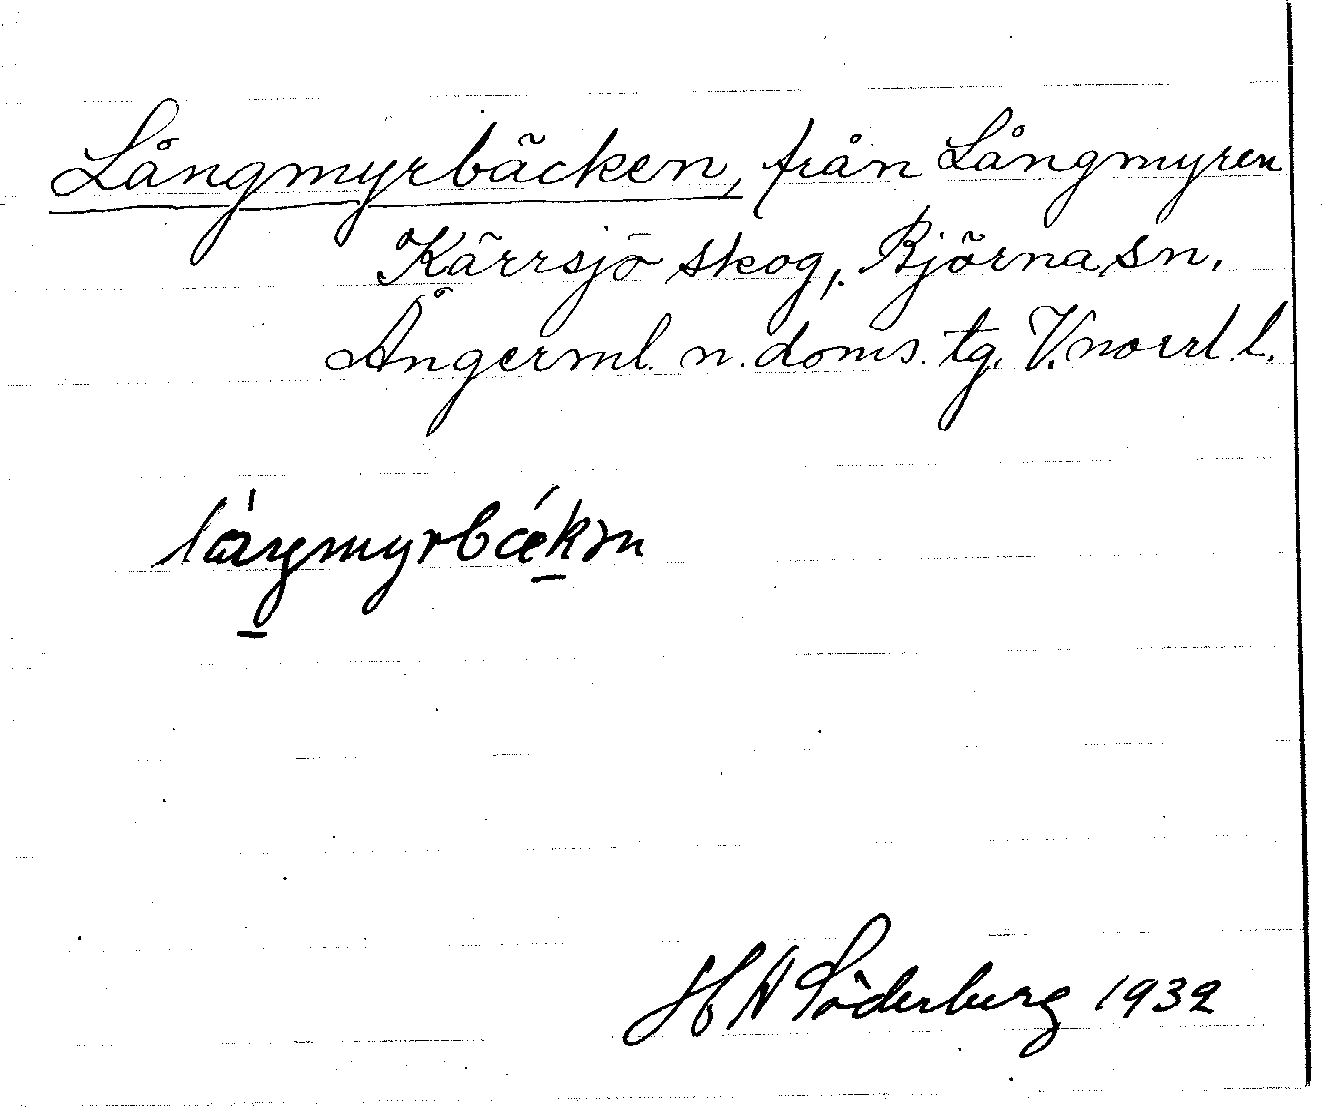 Långmyrbäcken, från Långmyren
Kärrsjö skog, Björna sn,
Ångerml. n. doms. tg. V.norrl. l.
H A Söderberg 1932